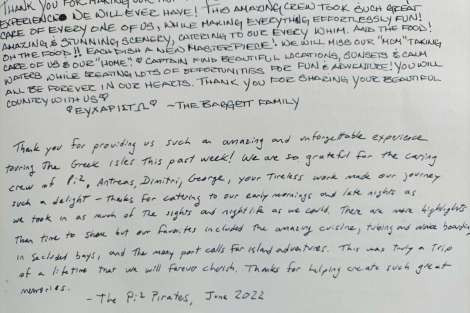 THANK YOU FOR MAKING OUR
EXPERIENCE WE WILL EVER HAVE! THIS AMAZING CREW TOOK SUCH GREAT
CARE OF EVERY ONE OF US, WHILE MAKING EVERYTHING EFFORTLESSLY FUN!
AMAZING & STUNNING SCENERY, CATERING TO OUR EVERY WHIM. AND THE FOOD!
OH THE FOOD!! EACH DISH A NEW MASTERPIECE! WE WILL MISS OUR "MOM" TAKING
CARE OF US & OUR "HOME" & CAPTAIN FIND BEAUTIFUL LOCATIONS, SUNSETS & CALM
WATERS, WHILE CREATING LOTS OF OPPORTUNITIES FOR FUN & ADVENTURE! YOU WILL
ALL BE FOREVER IN OUR HEARTS. THANK YOU FOR SHARING YOUR BEAUTIFUL
COUNTRY WITH US♡
♡ΕΥΧΑΡΙΣΤΩ♡ ~THE BAGGETT FAMILY
Thank you for providing us such an amazing and unforgettable experience
touring The Greek isles this past week! We are so grateful for the caring
crew of Pi2, Antreas, Dimitri, George, your tireless work made our journey
such a delight - Thanks for catering to our early mornings and late nights as
we took in as much of the sights and nightlife as we could. There are more highlights
then time to share but our favorites included the amazing cuisine, tubing and wake boarding
in secluded bays, and the many port calls for island adventures. This was truly a Trip
of a lifetime that we will forever cherish. Thanks for helping create such great
memories.
- The Pi2 Pirates, June 2022